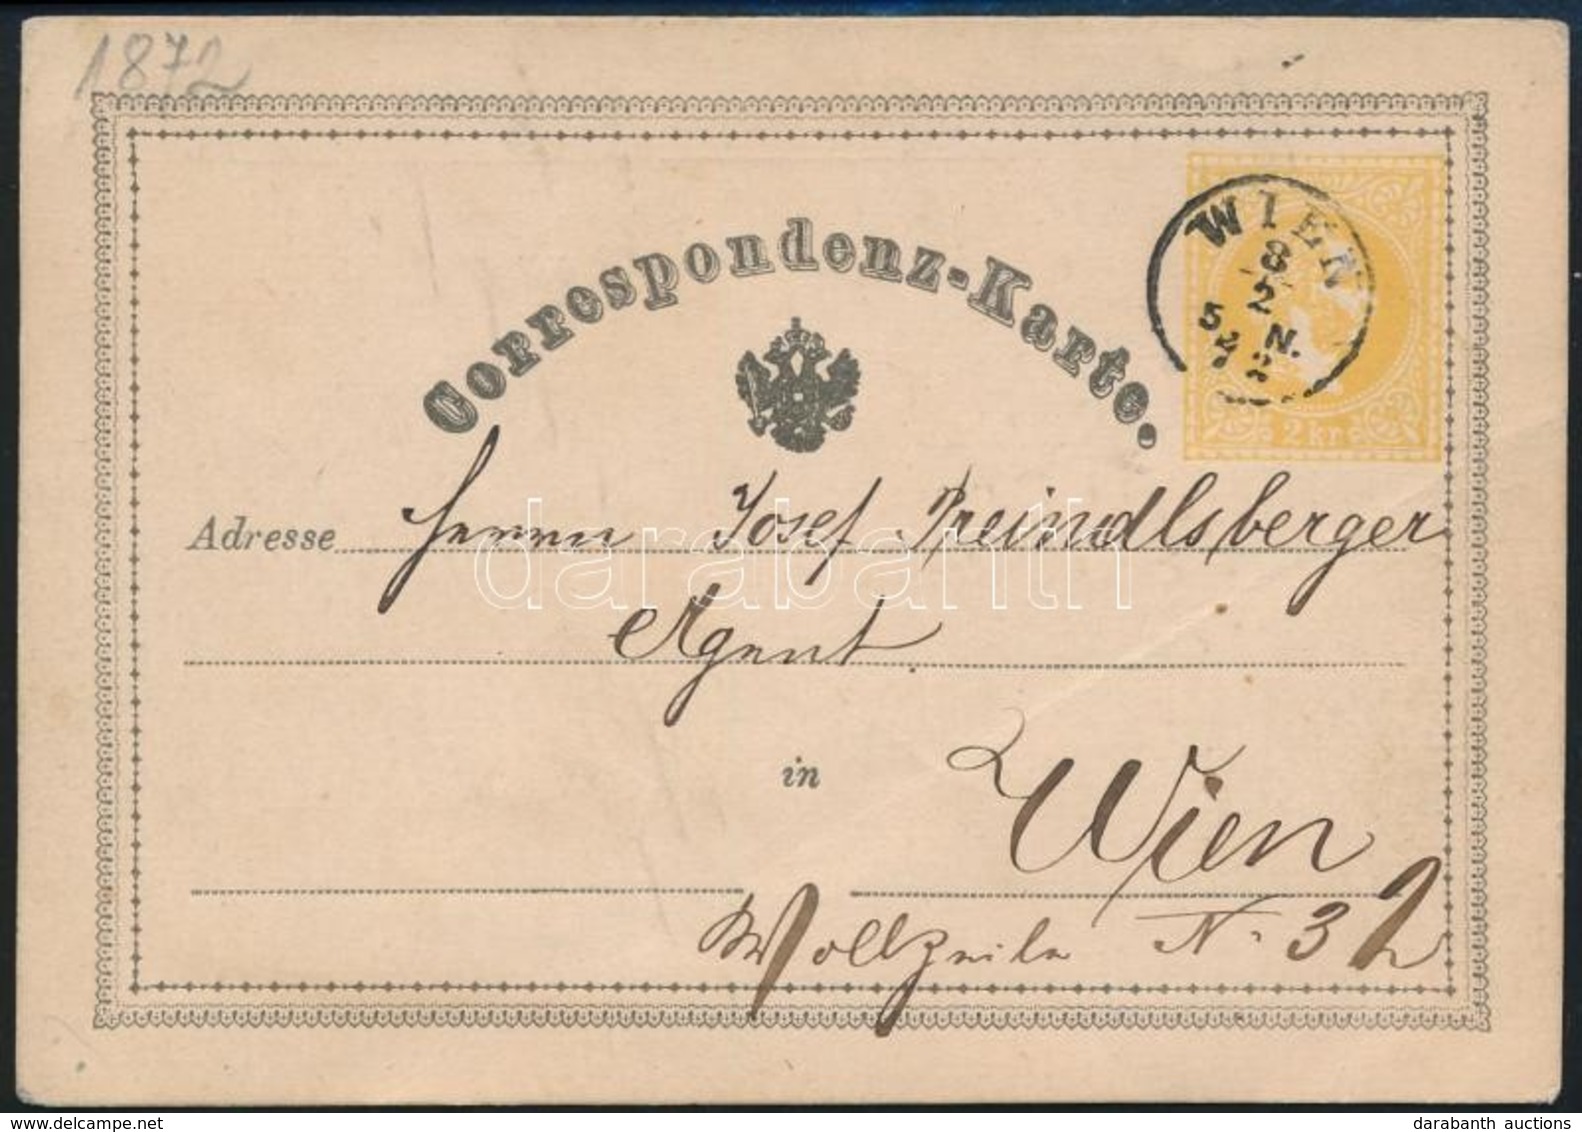 1872
Correspondenz-Karte.
WIEN
8
2
5 N.
72
2 kr
Adresse Herrn Josef Preindlsberger
darabanth
Agent
in Wien
Wollzeile N. 32
www.delcampe.net
darabanth auctions